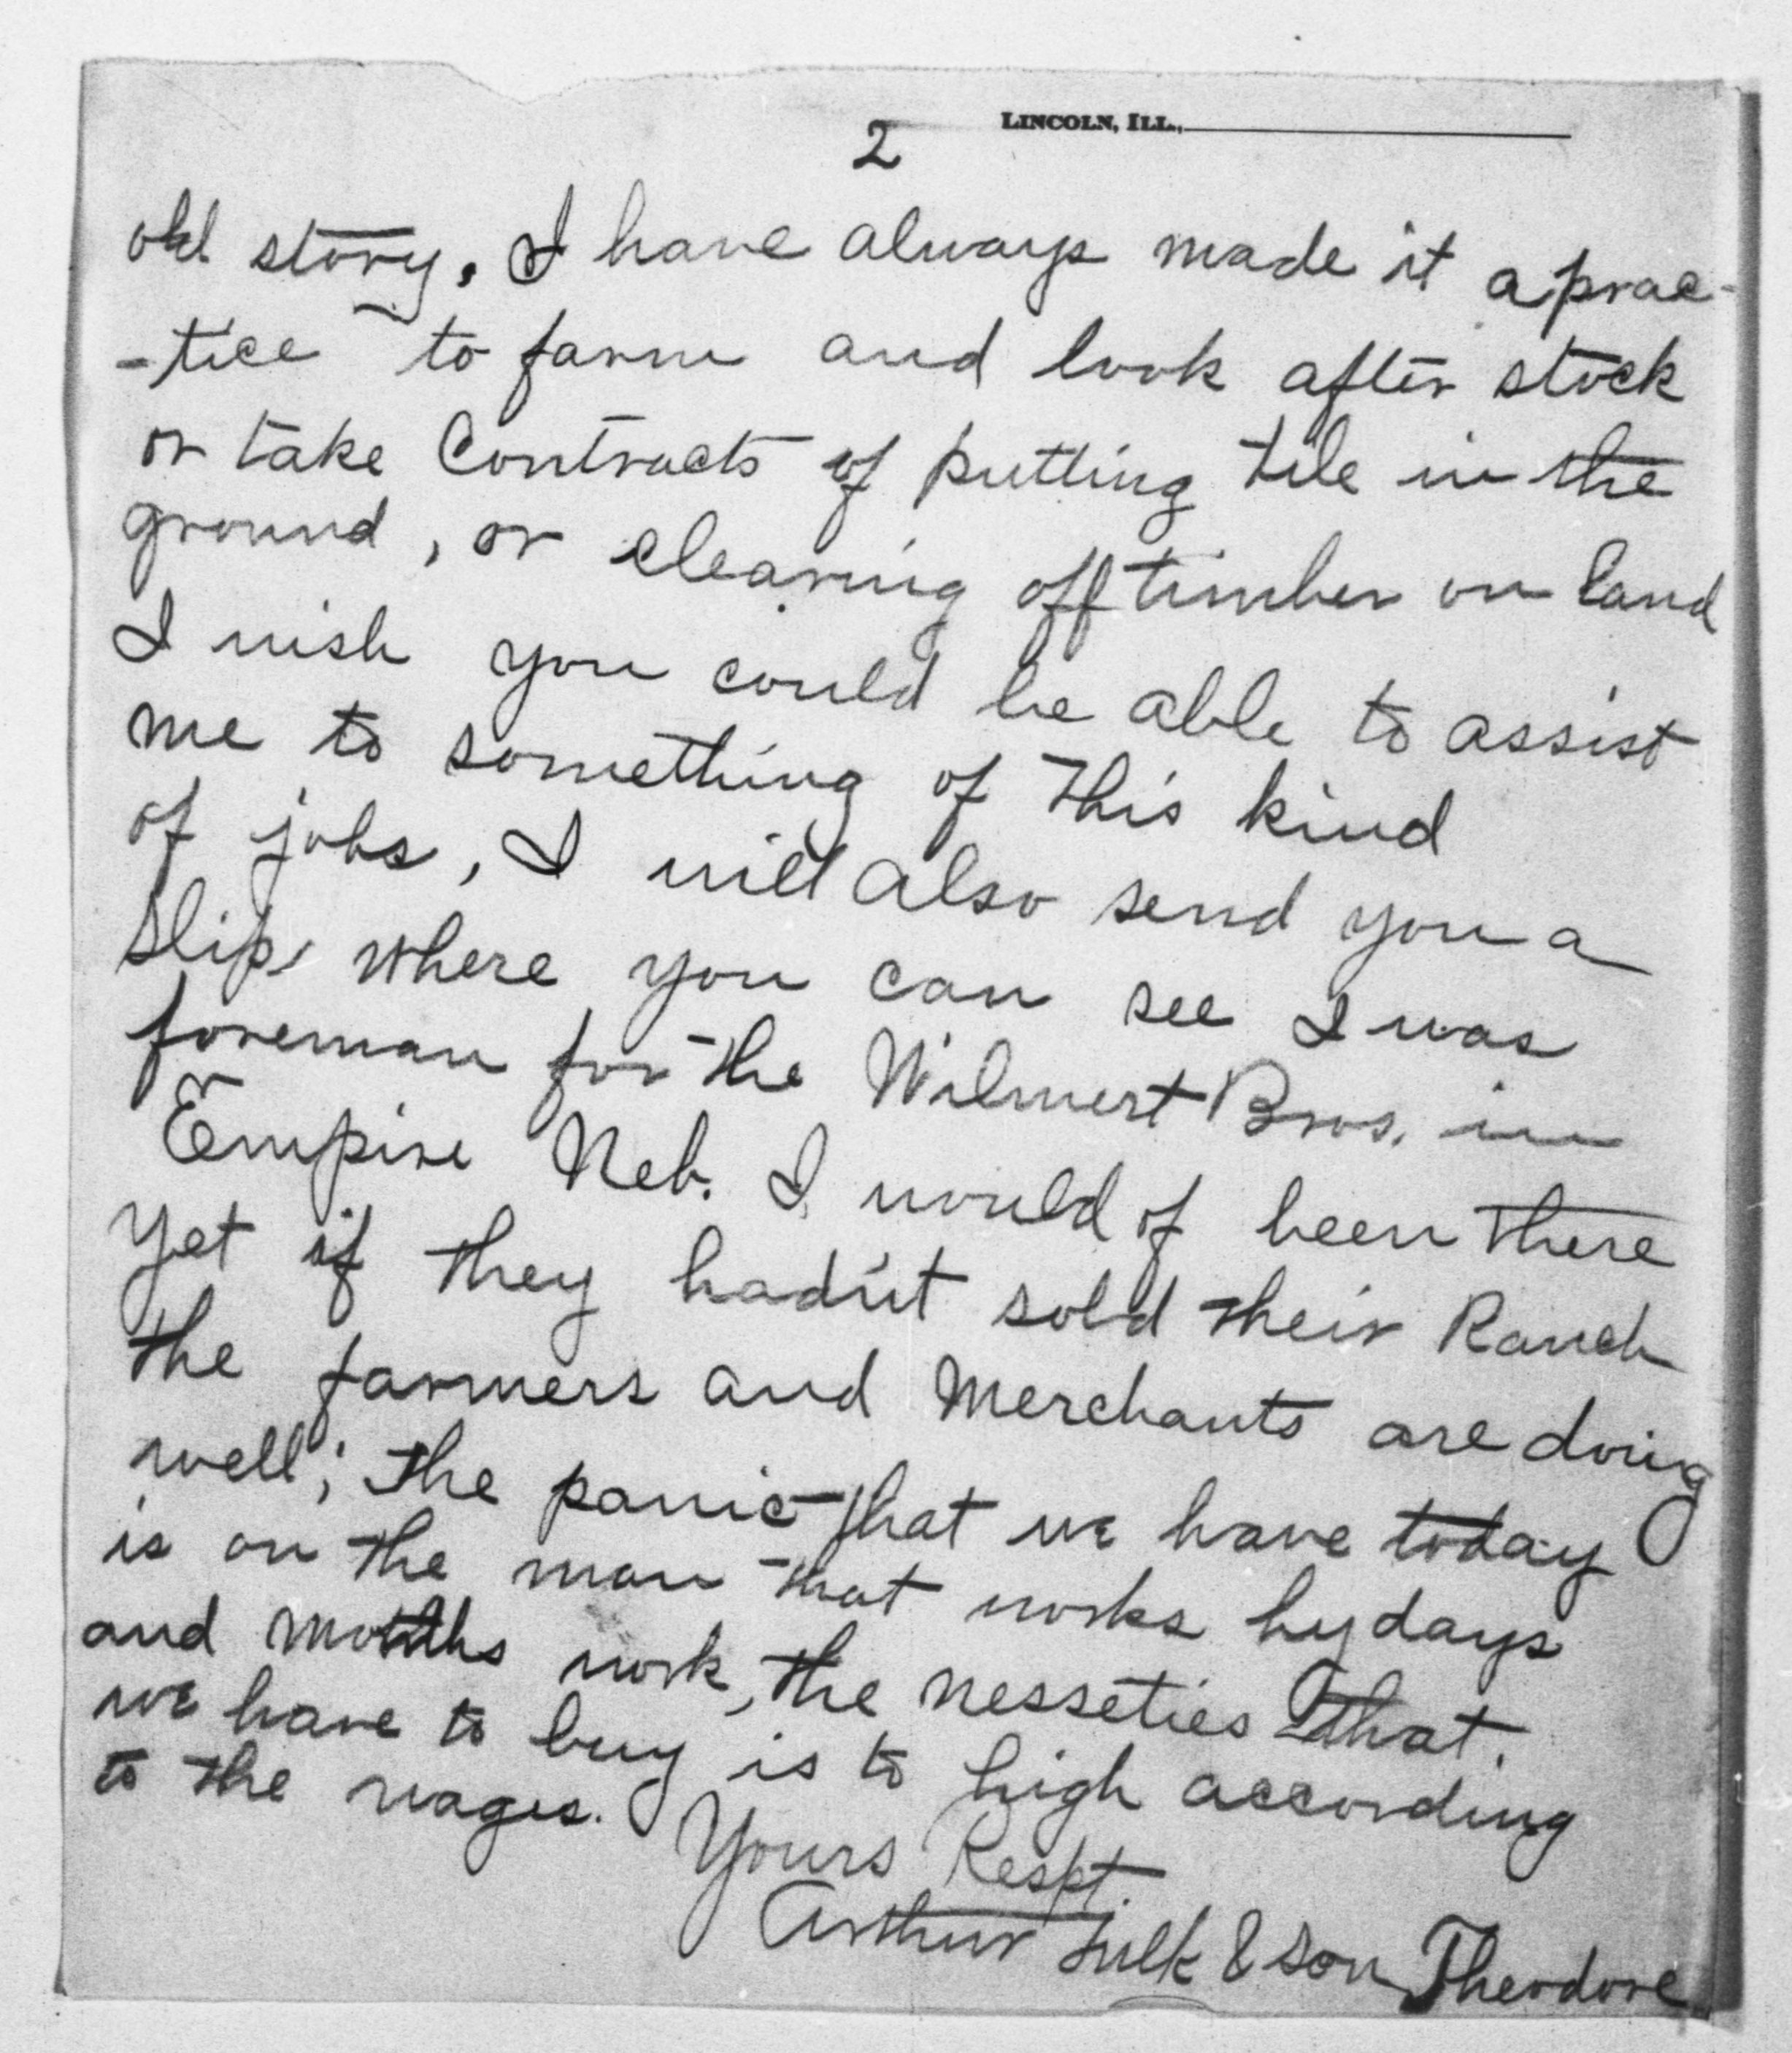 LINCOLN, ILL.,
2
old story. I have always made it a prac-
-tice to farm and look after stock
or take Contracts of putting tile in the
ground, or clearing off timber on land
I wish you could be able to assist
me to something of this kind
of jobs, I will also send you a
Slip, where you can see I was
foreman for the Wilmert Bros. in
Empire Neb. I would of been there
yet if they had'nt sold their Ranch
the farmers and Merchants are doing
well; the panic that we have today
is on the man that works by days
and months work, the nesseties that.
we have to buy is to high according
to the wages.
Yours Respt.
Arthur & Son Theodore